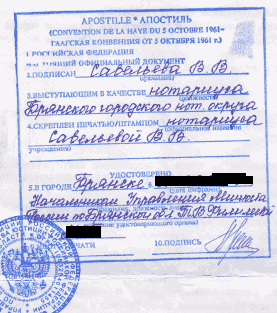 APOSTILLE * АПОСТИЛЬ
(CONVENTION DE LA HAYE DU 5 OCTOBRE 1961–
ГААГСКАЯ КОНВЕНЦИЯ ОТ 5 ОКТЯБРЯ 1961 г.)
1.РОССИЙСКАЯ ФЕДЕРАЦИЯ
ОФИЦИАЛЬНЫЙ ДОКУМЕНТ
2.ПОДПИСАН Савельева В.В.
(фамилия)
3.ВЫСТУПАЮЩИМ В КАЧЕСТВЕ нотариуса
(должность)
Брянского городского нот. округа
4.СКРЕПЛЕН ПЕЧАТЬЮ/ШТАМПОМ нотариуса
Савельевой В.В.
учреждения)
УДОСТОВЕРЕНО
5.В ГОРОДЕ Брянске 6.
Начальником Управления Минюста
России по Брянской обл. Т.В.
ПЕЧАТИ
10.ПОДПИСЬ